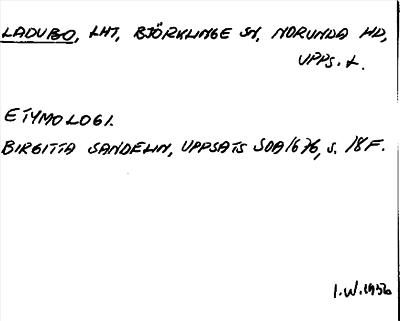 LADUBO, LHT, BJÖRKLINGE SN, NORUNDA HD,
UPPS. L.
ETYMOLOGI.
BIRGITTA SANDELIN, UPPSATS SOA 1676, S. 18 F.
I.W.